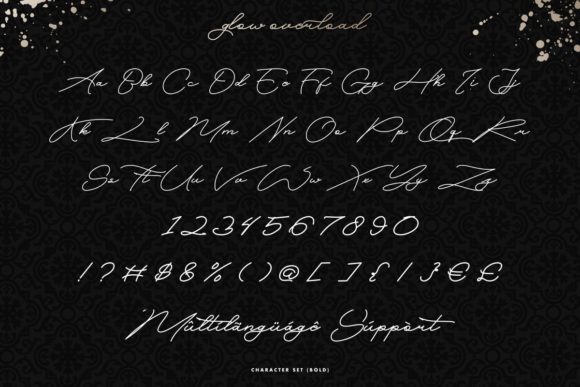 glow overload
Aa Bb Cc Dd Ee Ff Gg Hh Ii Jj
Kk Ll Mm Nn Oo Pp Qq Rr
Ss Tt Uu Vv Ww Xx Yy Zz
1234567890
!?#$&%()@[]{/}€£
Mültilängüágê Súppòrt
CHARACTER SET (BOLD)